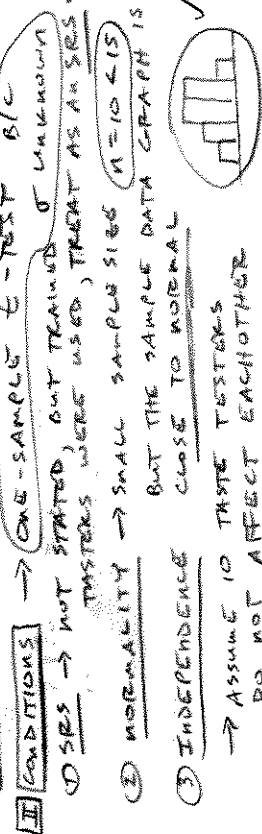 II CONDITIONS → ONE-SAMPLE t-TEST B/C
σ UNKNOWN
① SRS → NOT STATED, BUT TRAINED
TASTERS WERE USED, TREAT AS AN SRS.
② NORMALITY → SMALL SAMPLE SIZE n = 10 < 15
BUT THE SAMPLE DATA GRAPH IS
CLOSE TO NORMAL
③ INDEPENDENCE
→ ASSUME 10 TASTE TESTERS
DO NOT AFFECT EACHOTHER